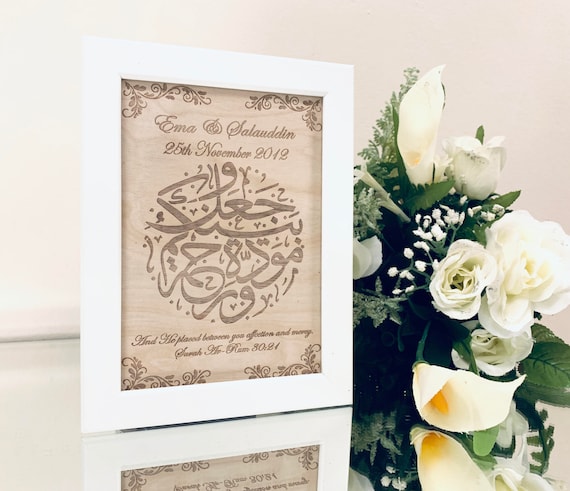 Ema & Salauddin
25th November 2012
وجعل
بينكم
مودة
ورحمة
And He placed between you affection and mercy.
Surah Ar-Rum 30:21